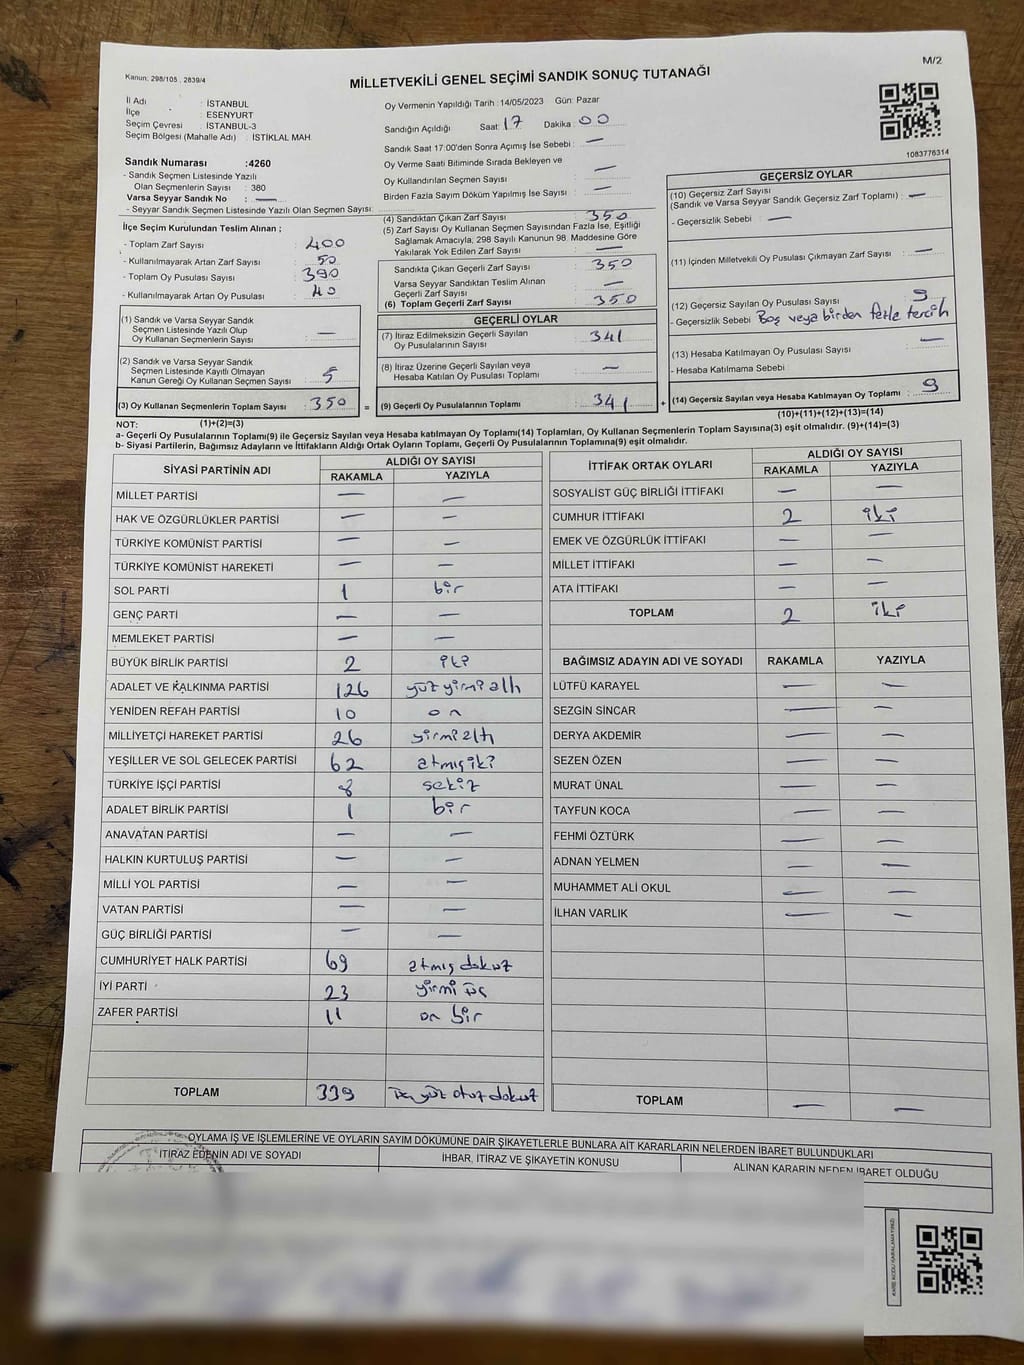 M/2
Kanun: 298/105 , 2839/4
MİLLETVEKİLİ GENEL SEÇİMİ SANDIK SONUÇ TUTANAĞI
İl Adı : İSTANBUL
İlçe : ESENYURT
Seçim Çevresi : İSTANBUL-3
Seçim Bölgesi (Mahalle Adı) : İSTİKLAL MAH.
Sandık Numarası :4260
- Sandık Seçmen Listesinde Yazılı
Olan Seçmenlerin Sayısı : 380
Varsa Seyyar Sandık No : —
- Seyyar Sandık Seçmen Listesinde Yazılı Olan Seçmen Sayısı:
Oy Vermenin Yapıldığı Tarih : 14/05/2023 Gün: Pazar
Sandığın Açıldığı Saat: 17 Dakika: 00
Sandık Saat 17:00'den Sonra Açımış İse Sebebi : —
Oy Verme Saati Bitiminde Sırada Bekleyen ve
Oy Kullandırılan Seçmen Sayısı : —
Birden Fazla Sayım Döküm Yapılmış İse Sayısı : —
1083776314
İlçe Seçim Kurulundan Teslim Alınan ;
- Toplam Zarf Sayısı : 400
- Kullanılmayarak Artan Zarf Sayısı : 50
- Toplam Oy Pusulası Sayısı : 390
- Kullanılmayarak Artan Oy Pusulası : 40
(1) Sandık ve Varsa Seyyar Sandık
Seçmen Listesinde Yazılı Olup
Oy Kullanan Seçmenlerin Sayısı : —
(2) Sandık ve Varsa Seyyar Sandık
Seçmen Listesinde Kayıtlı Olmayan
Kanun Gereği Oy Kullanan Seçmen Sayısı : 5
(3) Oy Kullanan Seçmenlerin Toplam Sayısı : 350
(1)+(2)=(3)
(4) Sandıktan Çıkan Zarf Sayısı : 350
(5) Zarf Sayısı Oy Kullanan Seçmen Sayısından Fazla İse, Eşitliği
Sağlamak Amacıyla; 298 Sayılı Kanunun 98. Maddesine Göre
Yakılarak Yok Edilen Zarf Sayısı : —
Sandıkta Çıkan Geçerli Zarf Sayısı : 350
Varsa Seyyar Sandıktan Teslim Alınan
Geçerli Zarf Sayısı : —
(6) Toplam Geçerli Zarf Sayısı : 350
GEÇERLİ OYLAR
(7) İtiraz Edilmeksizin Geçerli Sayılan
Oy Pusulalarının Sayısı : 341
(8) İtiraz Üzerine Geçerli Sayılan veya
Hesaba Katılan Oy Pusulası Toplamı : —
= (9) Geçerli Oy Pusulalarının Toplamı : 341
GEÇERSİZ OYLAR
(10) Geçersiz Zarf Sayısı
(Sandık ve Varsa Sandık Geçersiz Zarf Toplamı) : —
- Geçersizlik Sebebi : —
(11) İçinden Milletvekili Oy Pusulası Çıkmayan Zarf Sayısı : —
(12) Geçersiz Sayılan Oy Pusulası Sayısı : 9
- Geçersizlik Sebebi : Boş veya birden fazla tercih
(13) Hesaba Katılmayan Oy Pusulası Sayısı : —
- Hesaba Katılmama Sebebi :
+ (14) Geçersiz Sayılan veya Hesaba Katılmayan Oy Toplamı : 9
(10)+(11)+(12)+(13)=(14)
NOT:
a- Geçerli Oy Pusulalarının Toplamı(9) ile Geçersiz Sayılan veya Hesaba katılmayan Oy Toplamı(14) Toplamları, Oy Kullanan Seçmenlerin Toplam Sayısına(3) eşit olmalıdır. (9)+(14)=(3)
b- Siyasi Partilerin, Bağımsız Adayların ve İttifakların Aldığı Ortak Oyların Toplamı, Geçerli Oy Pusulalarının Toplamına(9) eşit olmalıdır.
SİYASİ PARTİNİN ADI ALDIĞI OY SAYISI
RAKAMLA YAZIYLA
MİLLET PARTİSİ — —
HAK VE ÖZGÜRLÜKLER PARTİSİ — —
TÜRKİYE KOMÜNİST PARTİSİ — —
TÜRKİYE KOMÜNİST HAREKETİ — —
SOL PARTİ 1 bir
GENÇ PARTİ — —
MEMLEKET PARTİSİ — —
BÜYÜK BİRLİK PARTİSİ 2 iki
ADALET VE KALKINMA PARTİSİ 126 yüz yirmi altı
YENİDEN REFAH PARTİSİ 10 on
MİLLİYETÇİ HAREKET PARTİSİ 26 yirmi altı
YEŞİLLER VE SOL GELECEK PARTİSİ 62 atmış iki
TÜRKİYE İŞÇİ PARTİSİ 8 sekiz
ADALET BİRLİK PARTİSİ 1 bir
ANAVATAN PARTİSİ — —
HALKIN KURTULUŞ PARTİSİ — —
MİLLİ YOL PARTİSİ — —
VATAN PARTİSİ — —
GÜÇ BİRLİĞİ PARTİSİ — —
CUMHURİYET HALK PARTİSİ 69 atmış dokuz
İYİ PARTİ 23 yirmi üç
ZAFER PARTİSİ 11 on bir
TOPLAM 339 üç yüz otuz dokuz
İTTİFAK ORTAK OYLARI ALDIĞI OY SAYISI
RAKAMLA YAZIYLA
SOSYALİST GÜÇ BİRLİĞİ İTTİFAKI — —
CUMHUR İTTİFAKI 2 iki
EMEK VE ÖZGÜRLÜK İTTİFAKI — —
MİLLET İTTİFAKI — —
ATA İTTİFAKI — —
TOPLAM 2 iki
BAĞIMSIZ ADAYIN ADI VE SOYADI RAKAMLA YAZIYLA
LÜTFÜ KARAYEL — —
SEZGİN SİNCAR — —
DERYA AKDEMİR — —
SEZEN ÖZEN — —
MURAT ÜNAL — —
TAYFUN KOCA — —
FEHMİ ÖZTÜRK — —
ADNAN YELMEN — —
MUHAMMET ALİ OKUL — —
İLHAN VARLIK — —
TOPLAM — —
OYLAMA İŞ VE İŞLEMLERİNE VE OYLARIN SAYIM DÖKÜMÜNE DAİR ŞİKAYETLERLE BUNLARA AİT KARARLARIN NELERDEN İBARET BULUNDUKLARI
İTİRAZ EDENİN ADI VE SOYADI İHBAR, İTİRAZ VE ŞİKAYETİN KONUSU ALINAN KARARIN NEDEN İBARET OLDUĞU